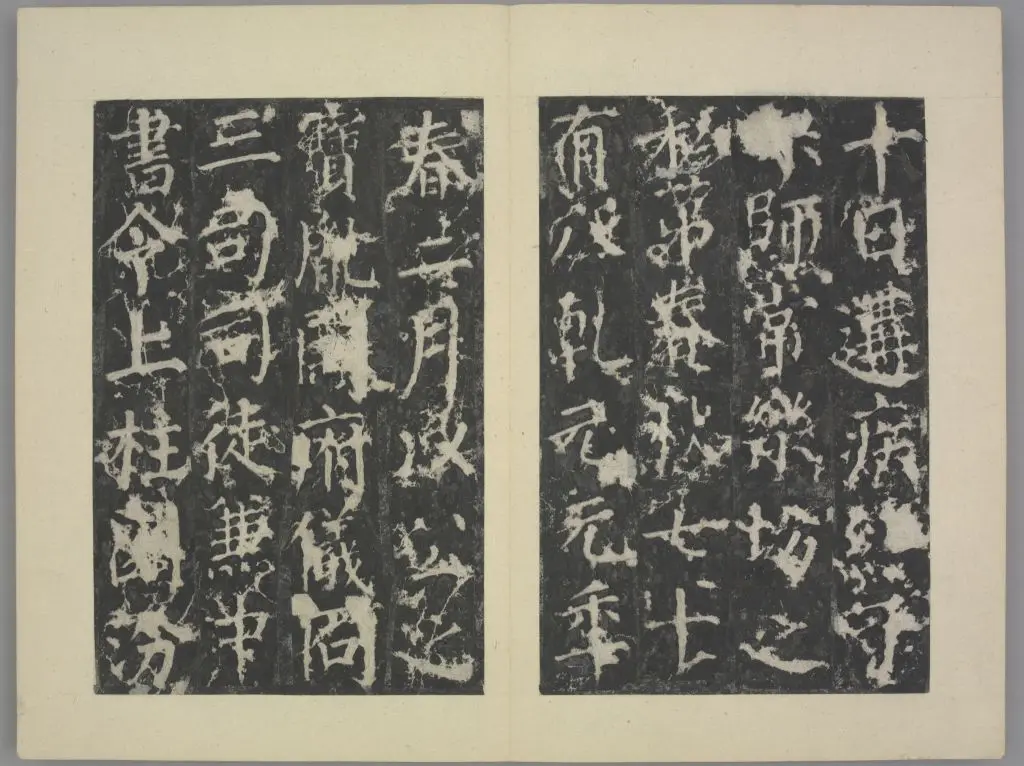 十日遘疾終于
京師常樂坊之
私第春秋七十
有八乾元元年
春二月以公之
寶胤開府儀同
三司司徒兼中
書令上柱國汾